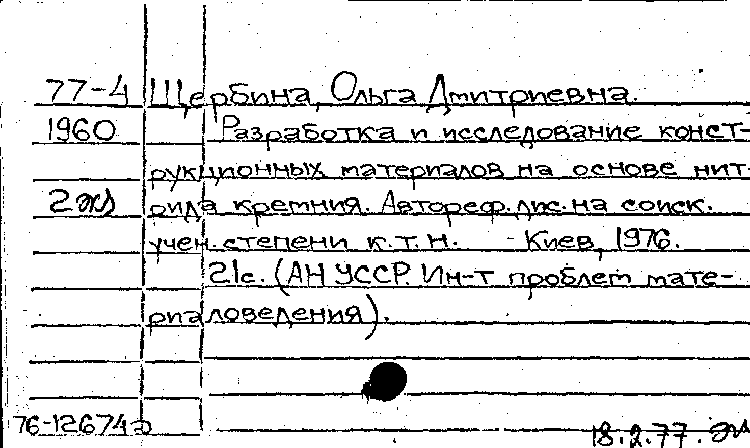 77-4 Щербина, Ольга Дмитриевна.
1960 Разработка и исследование конст-
рукционных материалов на основе нит-
2 эк рида кремния. Автореф. дис. на соиск.
учен. степени к.т.н. - Киев, 1976.
21с. (АН УССР. Ин-т проблем мате-
риаловедения).
76-12674а
18.2.77.